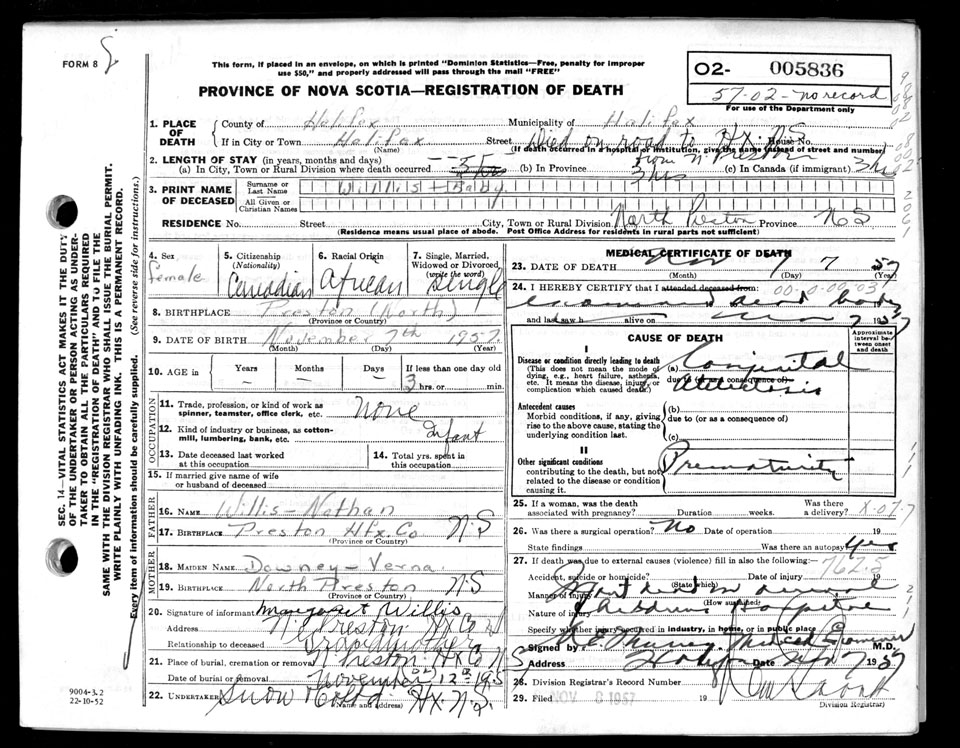 FORM 8
This form, if placed in an envelope, on which is printed "Dominion Statistics—Free, penalty for improper
use $50," and properly addressed will pass through the mail "FREE"
02- 005836
57-02-no record
For use of the Department only
PROVINCE OF NOVA SCOTIA—REGISTRATION OF DEATH
1. PLACE OF DEATH
County of Halifax Municipality of Halifax
If in City or Town Halifax (Name) Street Died on road to Hx NS House No.
(If death occurred in a hospital or institution, give the name instead of street and number)
from N. Preston
2. LENGTH OF STAY (in years, months and days)
(a) In City, Town or Rural Division where death occurred (b) In Province 3 hrs (c) In Canada (if immigrant) 3 hrs
3. PRINT NAME OF DECEASED
Surname or Last Name Willis + Baby
All Given or Christian Names
RESIDENCE No. Street City, Town or Rural Division North Preston Province N.S
(Residence means usual place of abode. Post Office Address for residents in rural parts not sufficient)
4. Sex female
5. Citizenship (Nationality) Canadian
6. Racial Origin African
7. Single, Married, Widowed or Divorced (write the word) Single
8. BIRTHPLACE Preston (North)
(Province or Country)
9. DATE OF BIRTH November 7th 1957
(Month) (Day) (Year)
10. AGE in Years – Months – Days – If less than one day old 3 hrs. or min.
OCCUPATION
11. Trade, profession, or kind of work as spinner, teamster, office clerk, etc. None
12. Kind of industry or business, as cotton-mill, lumbering, bank, etc. Infant
13. Date deceased last worked at this occupation
14. Total yrs. spent in this occupation
15. If married give name of wife or husband of deceased
FATHER
16. NAME Willis - Nathan
17. BIRTHPLACE Preston Hfx. Co N.S
(Province or Country)
MOTHER
18. MAIDEN NAME Downey - Verna
19. BIRTHPLACE North Preston N.S
(Province or Country)
20. Signature of informant Margaret Willis
Address N. Preston Hx Co
Relationship to deceased Grandmother
21. Place of burial, cremation or removal N Preston Hx Co N S
Date of burial or removal November 12th 195
22. Undertaker Snow Co Ltd Hx. N.S.
(Name and address)
MEDICAL CERTIFICATE OF DEATH
23. DATE OF DEATH Nov 7 57
(Month) (Day) (Year)
24. I HEREBY CERTIFY that I attended deceased from:
examined dead body
and last saw h alive on Nov 7 1957
CAUSE OF DEATH
Approximate interval between onset and death
I
Disease or condition directly leading to death
(This does not mean the mode of dying, e.g., heart failure, asthenia, etc. It means the disease, injury, or complication which caused death.)
(a) Congenital
due to (or as a consequence of)
Atelectasis
Antecedent causes
Morbid conditions, if any, giving rise to the above cause, stating the underlying condition last.
(b)
due to (or as a consequence of)
(c)
II
Other significant conditions
contributing to the death, but not related to the disease or condition causing it.
Prematurity
25. If a woman, was the death associated with pregnancy? Duration weeks. Was there a delivery?
26. Was there a surgical operation? No Date of operation 19
State findings Was there an autopsy? Yes
27. If death was due to external causes (violence) fill in also the following:— 762.5
Accident, suicide or homicide? (State which) Date of injury 19
Manner of injury (How sustained)
Nature of injury Childrens Hospital
Specify whether injury occurred in industry, in home, or in public place
Signed by Medical Examiner M.D.
Address Halifax Date Nov 7 1957
28. Division Registrar's Record Number
29. Filed NOV 8 1957 19
Division Registrar
SEC. 14—VITAL STATISTICS ACT MAKES IT THE DUTY
OF THE UNDERTAKER OR PERSON ACTING AS UNDER-
TAKER TO OBTAIN ALL THE PARTICULARS REQUIRED
IN THE "REGISTRATION OF DEATH" AND TO FILE THE
SAME WITH THE DIVISION REGISTRAR WHO SHALL ISSUE THE BURIAL PERMIT.
WRITE PLAINLY WITH UNFADING INK. THIS IS A PERMANENT RECORD.
Every item of information should be carefully supplied. (See reverse side for instructions.)
9004-3.2
22-10-52